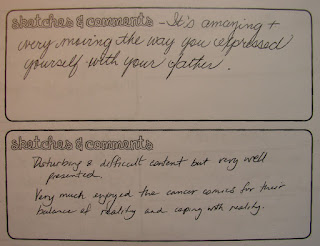 sketches & comments - It's amazing +
very moving the way you expressed
yourself with your father.
sketches & comments
Disturbing & difficult content but very well
presented.
Very much enjoyed the cancer comics for their
balance of reality and coping with reality.